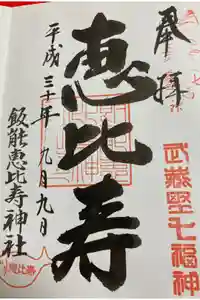 奉拝
武蔵野七福神
恵比寿
平成三十年九月九日
飯能恵比寿神社